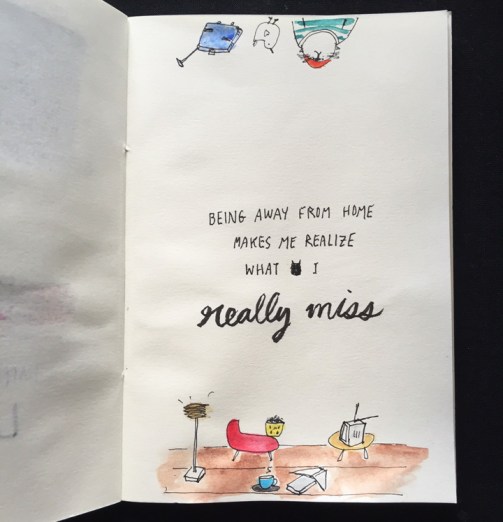 BEING AWAY FROM HOME
MAKES ME REALIZE
WHAT I
really miss